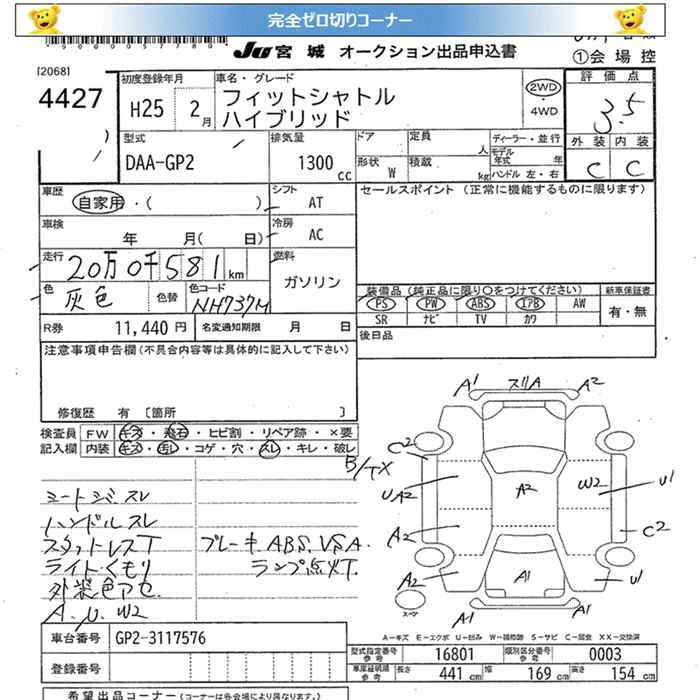 完全ゼロ切りコーナー
JU 宮城 オークション出品申込書
①会場控
[2068]
4427
初度登録年月
H25 2月
車名・グレード
フィットシャトル
ハイブリッド
2WD
・
4WD
評価点
3.5
外装 内装
C C
型式
DAA-GP2
排気量
1300 cc
ドア
定員 人
形状 W
積載 kg
ディーラー・並行
モデル年式 年
ハンドル 左・右
車歴
自家用・( )
シフト
AT
セールスポイント (正常に機能するものに限ります)
車検
年 月( 日)
冷房
AC
走行
20万0千581km
燃料
ガソリン
色
灰色
色替
色コード
NH737M
装備品(純正品に限り○をつけてください)
PS PW ABS エアB AW
SR ナビ TV カワ
新車保証書
有・無
R券 11,440円
名変通知期限 月 日
後日品
注意事項申告欄(不具合内容等は具体的に記入して下さい)
修復歴 有 〔箇所 〕
検査員 FW キズ・飛石・ヒビ割・リペア跡・×要
記入欄 内装 キズ・汚レ・コゲ・穴・スレ・キレ・破レ
B/TX
シートシミ スレ
ハンドルスレ
スタットレスT
ライトくもり
外装色アセ
A.U.W2
ブレーキ.ABS.VSA.
ランプ点灯.
A1 スリA A2
C2
UA2
A2
A2
A2
W2
U1
C2
U1
A1
A1 A1
スペアー
A-キズ E-エクボ U-凹み W-補修跡 S-サビ C-腐食 XX-交換済
車台番号 GP2-3117576
登録番号
型式指定番号参考 16801
類別区分番号参考 0003
車庫証明用参考 長さ 441 cm 幅 169 cm 高さ 154 cm
希望出品コーナー(コーナーは各会場により異なります。)